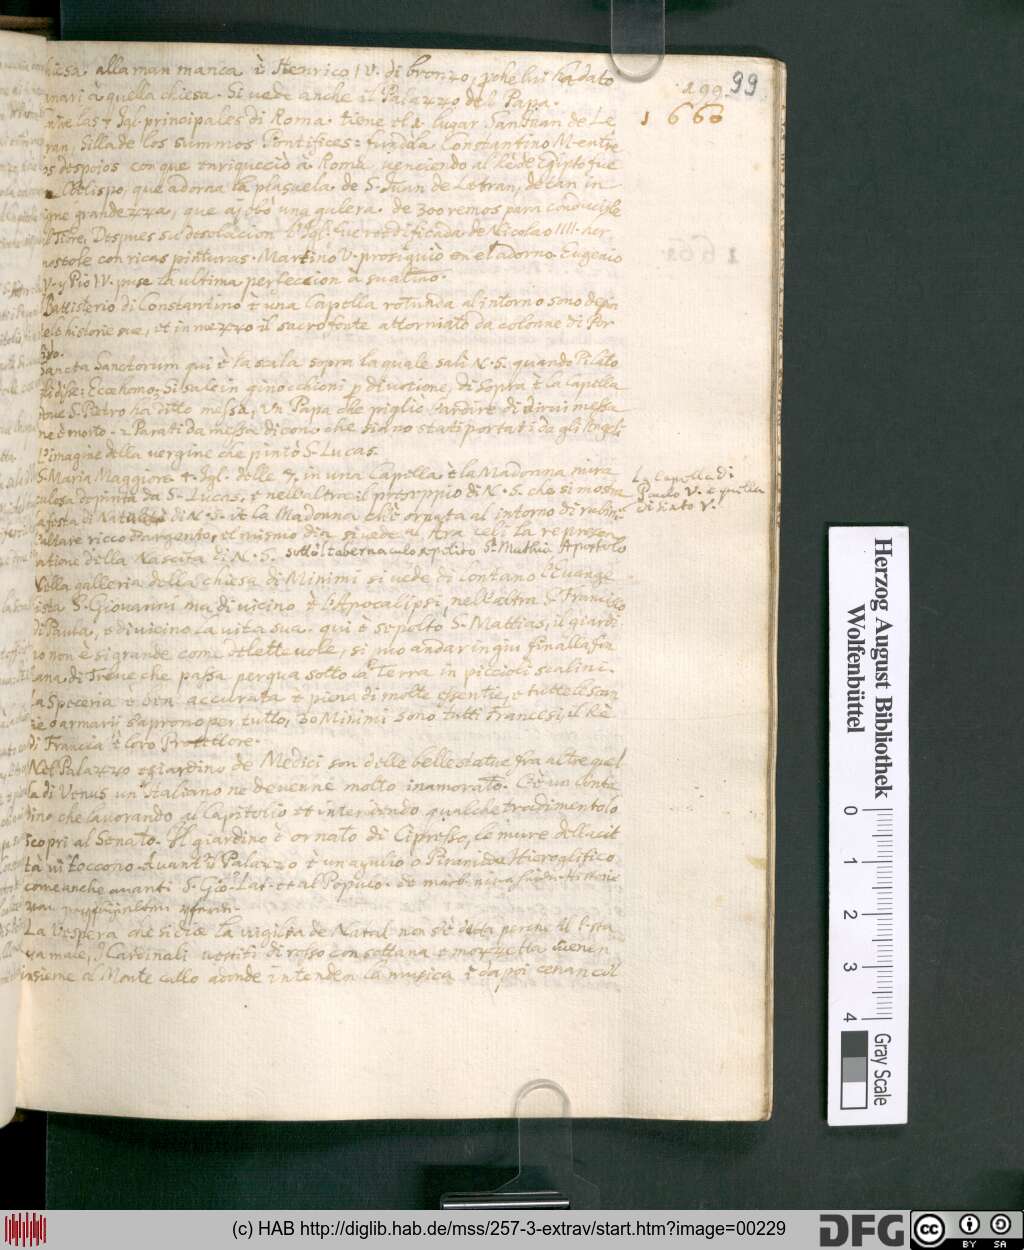 199. 99
1660
chiesa alla man manca è Henrico IV. di bronzo, perche lui ha dato
denari à quella chiesa. Si vede anche il Palazzo del Papa.
Entre las 7 Igl. principales di Roma tiene el 1 lugar San Jean de Le
tran, silla de los summos Pontifices: fundòla Constantino M. entre
os despoios con que enriqueciò à Roma venciendo al Rè de Egipto fue
Obelispo, que adorna la plasuela de S. Juan de Letran, de tan in
signe grandezza, que ajobò una gulera de 300 remos para conducirle
il Tibre. Despues su desolacion l'Igl. fue reedificada de Nicolao IIII. ador
nostole con ricas pinturas. Martino V. prosiguiò en el adorno. Eugenio
IV. y Pio IV. puse la ultima perfeccion à su altino.
Battisterio di Constantino è una Capella rotunda al intorno sono depin
te le historie sue, et in mezzo il sacro fonte attorniato da colonne di Por
fido.
Sancta Sanctorum qui è la scala sopra la quale salì N. S. quando Pilato
gli disse: Ecce homo, Si sale in ginocchioni p divotione, di sopra è la Capella
dove S. Pietro ha ditto messa, Un Papa che pigliò l'ardire di dirvi messa
ne è morto. 2 Parati da messa dicon che siano stati portati da gli Angeli
l'imagine della vergine che pintò S. Lucas.
S. Maria Maggiore 4. Igl. delle 7, in una Capella è la Madonna mira
culosa depinta da S. Lucas, e nell'altra il preseppio di N. S. che si mostra
La Capella di
Paulo V. e quella
di Sixto V.
la festa di Natale di N. S. et la Madonna ch'è ornata al intorno di rubini
l'altare ricco d'argento, el mismo dia si vede a Ara celi la represen
tatione della Nascita di N. S. sotto l tabernaculo sepelito S. Mathia Apostolo
Nella galleria della chiesa di Minimi si vede di lontano l'Evange
lista S. Giovanni ma di vicino è l'Apocalipsi, nell'altra S. Francisco
di Paula, e di vicino la vita sua. qui è sepolto S. Mattias, il giardi
no non è si grande come dilettevole, si può andar in giu fin alla fon
tana di Treve che passa per qua sotto la Terra in piccioli scalini.
La Speceria è ben accurata è piena di molte essentie, e tutte le scan
zie o armarii s'aprono per tutto, 30 Minimi sono tutti Francesi, il Rè
di Francia è loro Protettore.
Nel Palazzo e giardino de Medici son delle belle statue fra altre quel
la di Venus un Italiano ne devenne molto inamorato. C'è un conta
dino che lavorando al Capitolio et intendendo qualche tradimento lo
scopri al Senato. Il giardino è ornato di Cipresso, le mure della cit
tà vi toccono. Avanti l Palazzo è un agulio o Piramide Hieroglifico
come anche avanti S. Gio. Lat. et al Populo.
La Vespera che si dice la vigilia de Natal non si è ditta perche il P. sta
va male, i Cardinali vestiti di rosso con sottana e mozzetta vienen
insieme a Monte Callo adonde intenden la musica e da poi cenan col
Herzog August Bibliothek
Wolfenbüttel
0 1 2 3 4
Gray Scale
(c) HAB http://diglib.hab.de/mss/257-3-extrav/start.htm?image=00229
DFG
cc BY SA